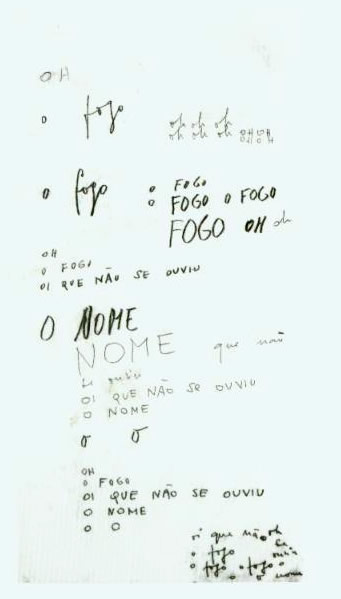 OH
o fogo
oh oh oh
oh oh oh OH OH
OH OH
o fogo
o FOGO
o FOGO O FOGO
FOGO OH oh
OH
O FOGO
OI QUE NÃO SE OUVIU
O NOME
NOME que não
se ouviu
OI QUE NÃO SE OUVIU
O NOME
o o
OH
O FOGO
OI QUE NÃO SE OUVIU
O NOME
O O
oi que não oh
o fogo se
o fogo o fogo
o nome